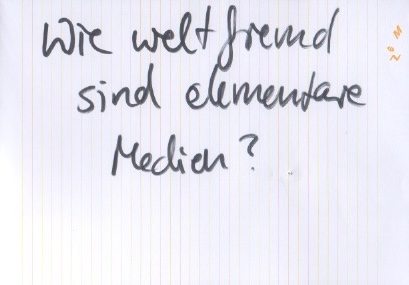 Wie weltfremd
sind elementare
Medien?